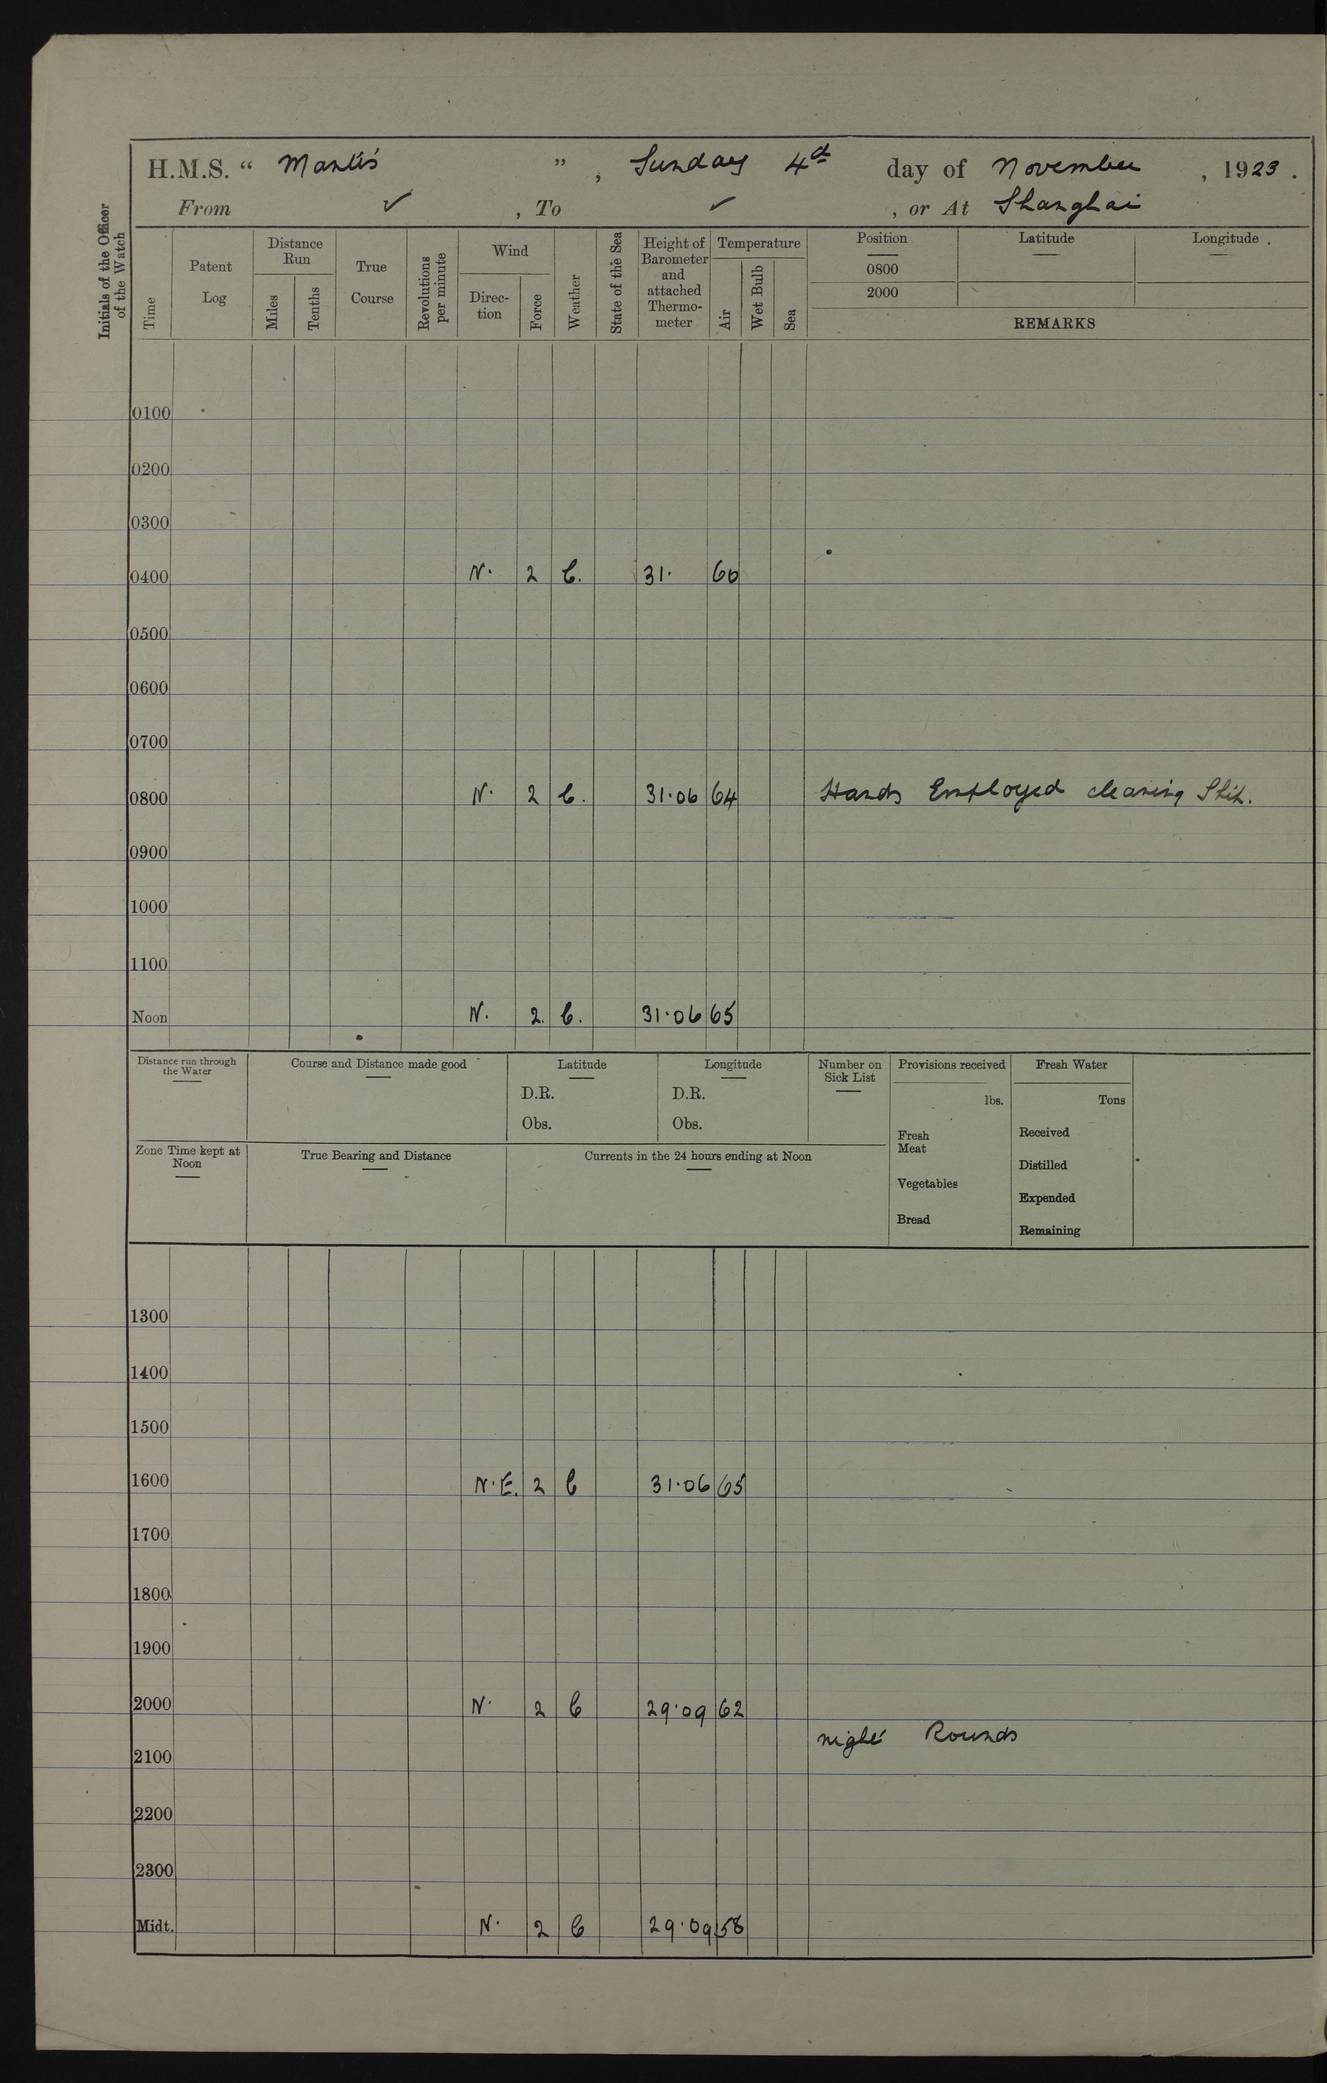 H.M.S. “ Mantis ” , Sunday 4th day of November , 1923 .
From ✓ , To ✓ , or At Shanghai
Initials of the Officer of the Watch
Time
Patent Log
Distance Run
Miles
Tenths
True Course
Revolutions per minute
Wind
Direc-tion
Force
Weather
State of the Sea
Height of Barometer and attached Thermo-meter
Temperature
Air
Wet Bulb
Sea
Position Latitude Longitude
0800
2000
REMARKS
0100
0200
0300
0400 N. 2 C. 31. 60
0500
0600
0700
0800 N. 2 C. 31.06 64 Hands Employed cleaning Ship.
0900
1000
1100
Noon N. 2. C. 31.06 65
Distance run through the Water
Course and Distance made good
Latitude
D.R.
Obs.
Longitude
D.R.
Obs.
Number on Sick List
Provisions received
lbs.
Fresh Meat
Vegetables
Bread
Fresh Water
Tons
Received
Distilled
Expended
Remaining
Zone Time kept at Noon
True Bearing and Distance
Currents in the 24 hours ending at Noon
1300
1400
1500
1600 N.E. 2 C 31.06 65
1700
1800
1900
2000 N. 2 C 29.09 62
night Rounds
2100
2200
2300
Midt. N. 2 C 29.09 58